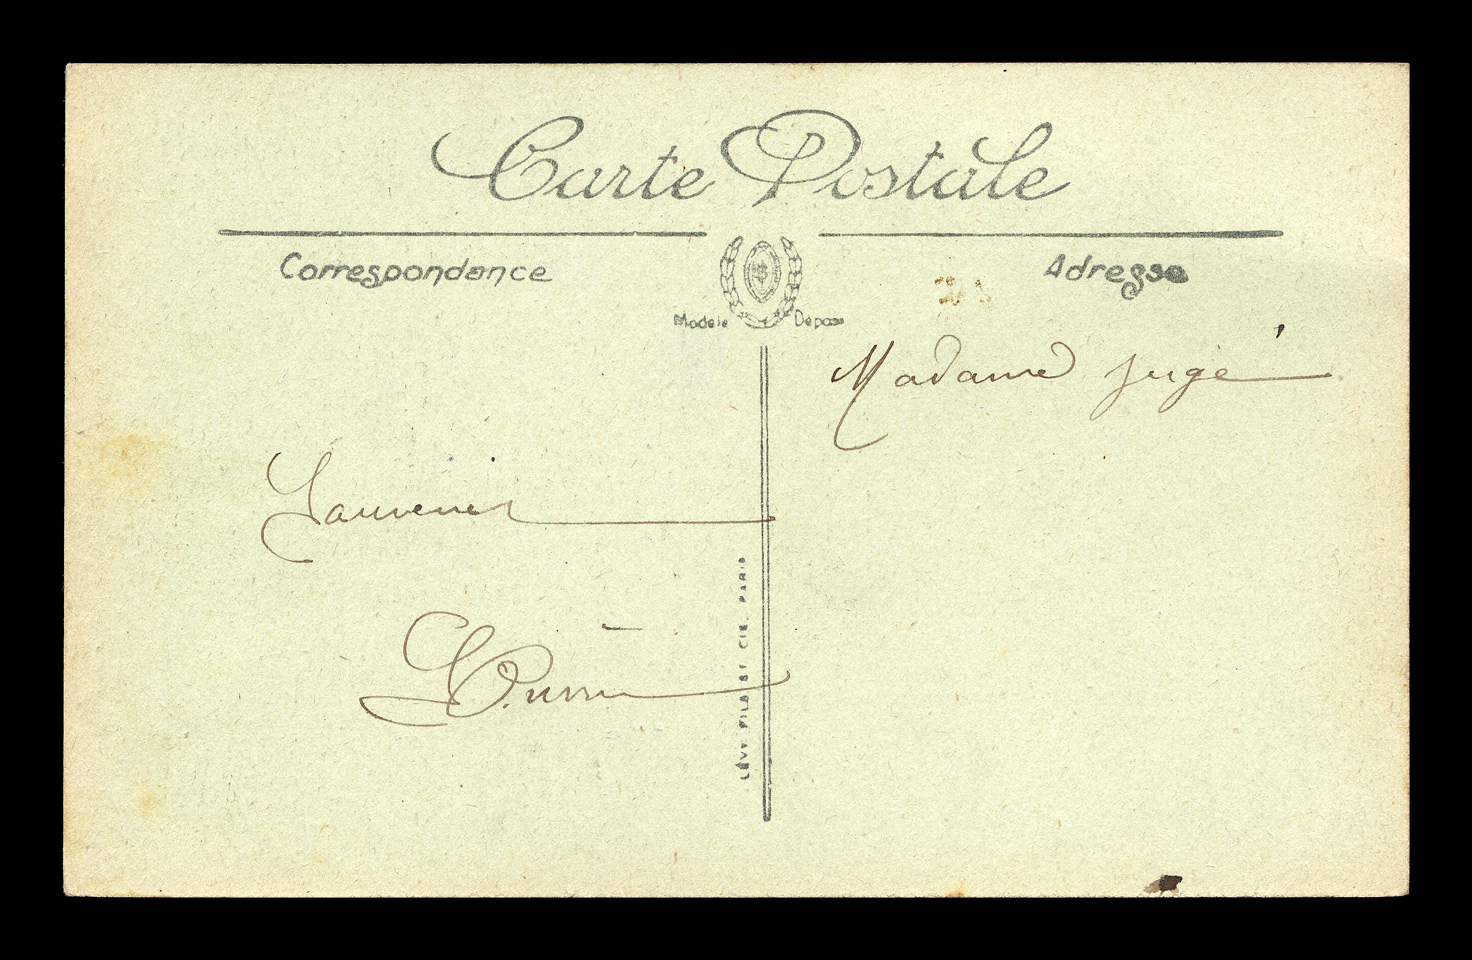 Carte Postale
Correspondance
Adresse
Modèle Déposé
Madame Jugé
Souvenir
LÉVY FILS ET CIE. PARIS